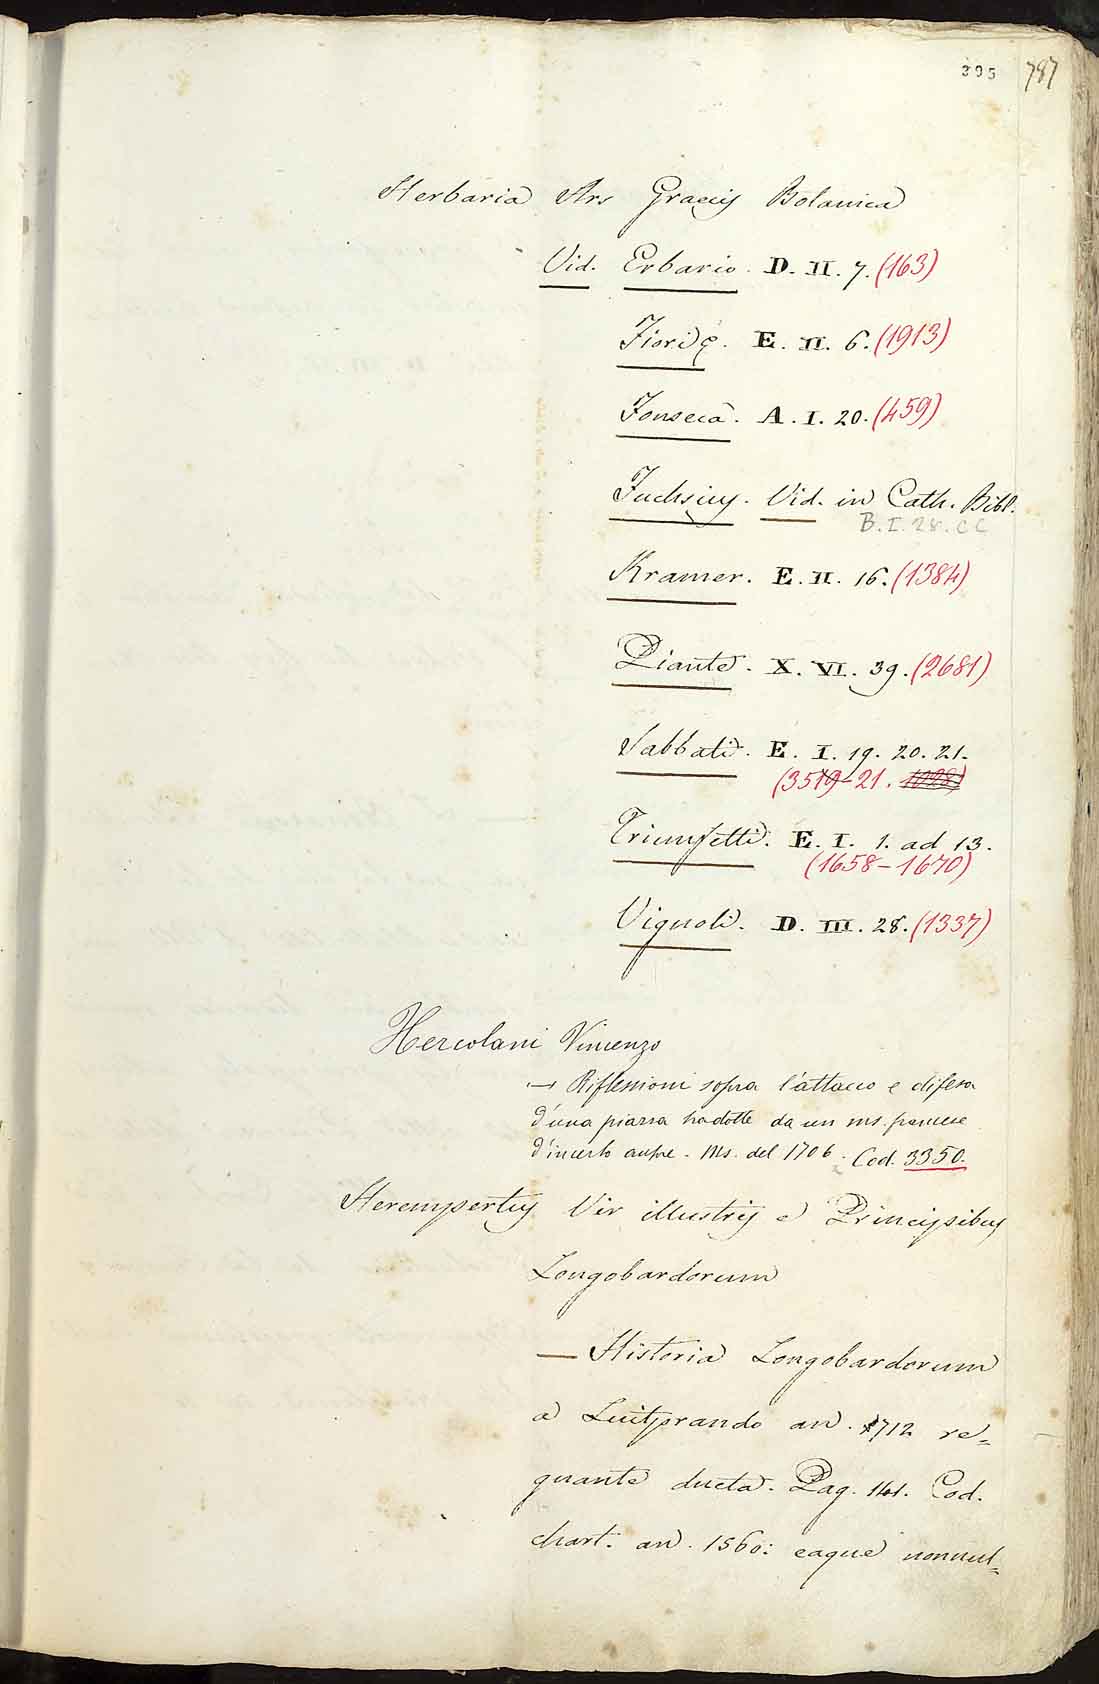 395 787
Herbaria Ars Graecis Botanica
Vid. Erbario. D. II. 7. (163)
Fiori &. E. II. 6. (1913)
Fonseca. A. I. 20. (459)
Fuchsius. Vid. in Cath. Bibl.
B. I. 28. CC
Kramer. E. II. 16. (1384)
Piante. X. VI. 39. (2681)
Sabbati. E. I. 19. 20. 21.
(3519-21. 1028)
Triumfetti. E. I. 1. ad 13.
(1658-1670)
Vignoli. D. III. 28. (1337)
Hercolani Vincenzo
— Riflessioni sopra l'attacco e difesa
d'una piazza tradotte da un ms. francese
d'incerto autore. Ms. del 1706. Cod. 3350.
Herempertus Vir illustris e Principibus
Longobardorum
— Historia Longobardorum
a Luitprando an. 712 re=
gnante ducta. Pag. 141. Cod.
chart. an. 1560: eaque nonnul=